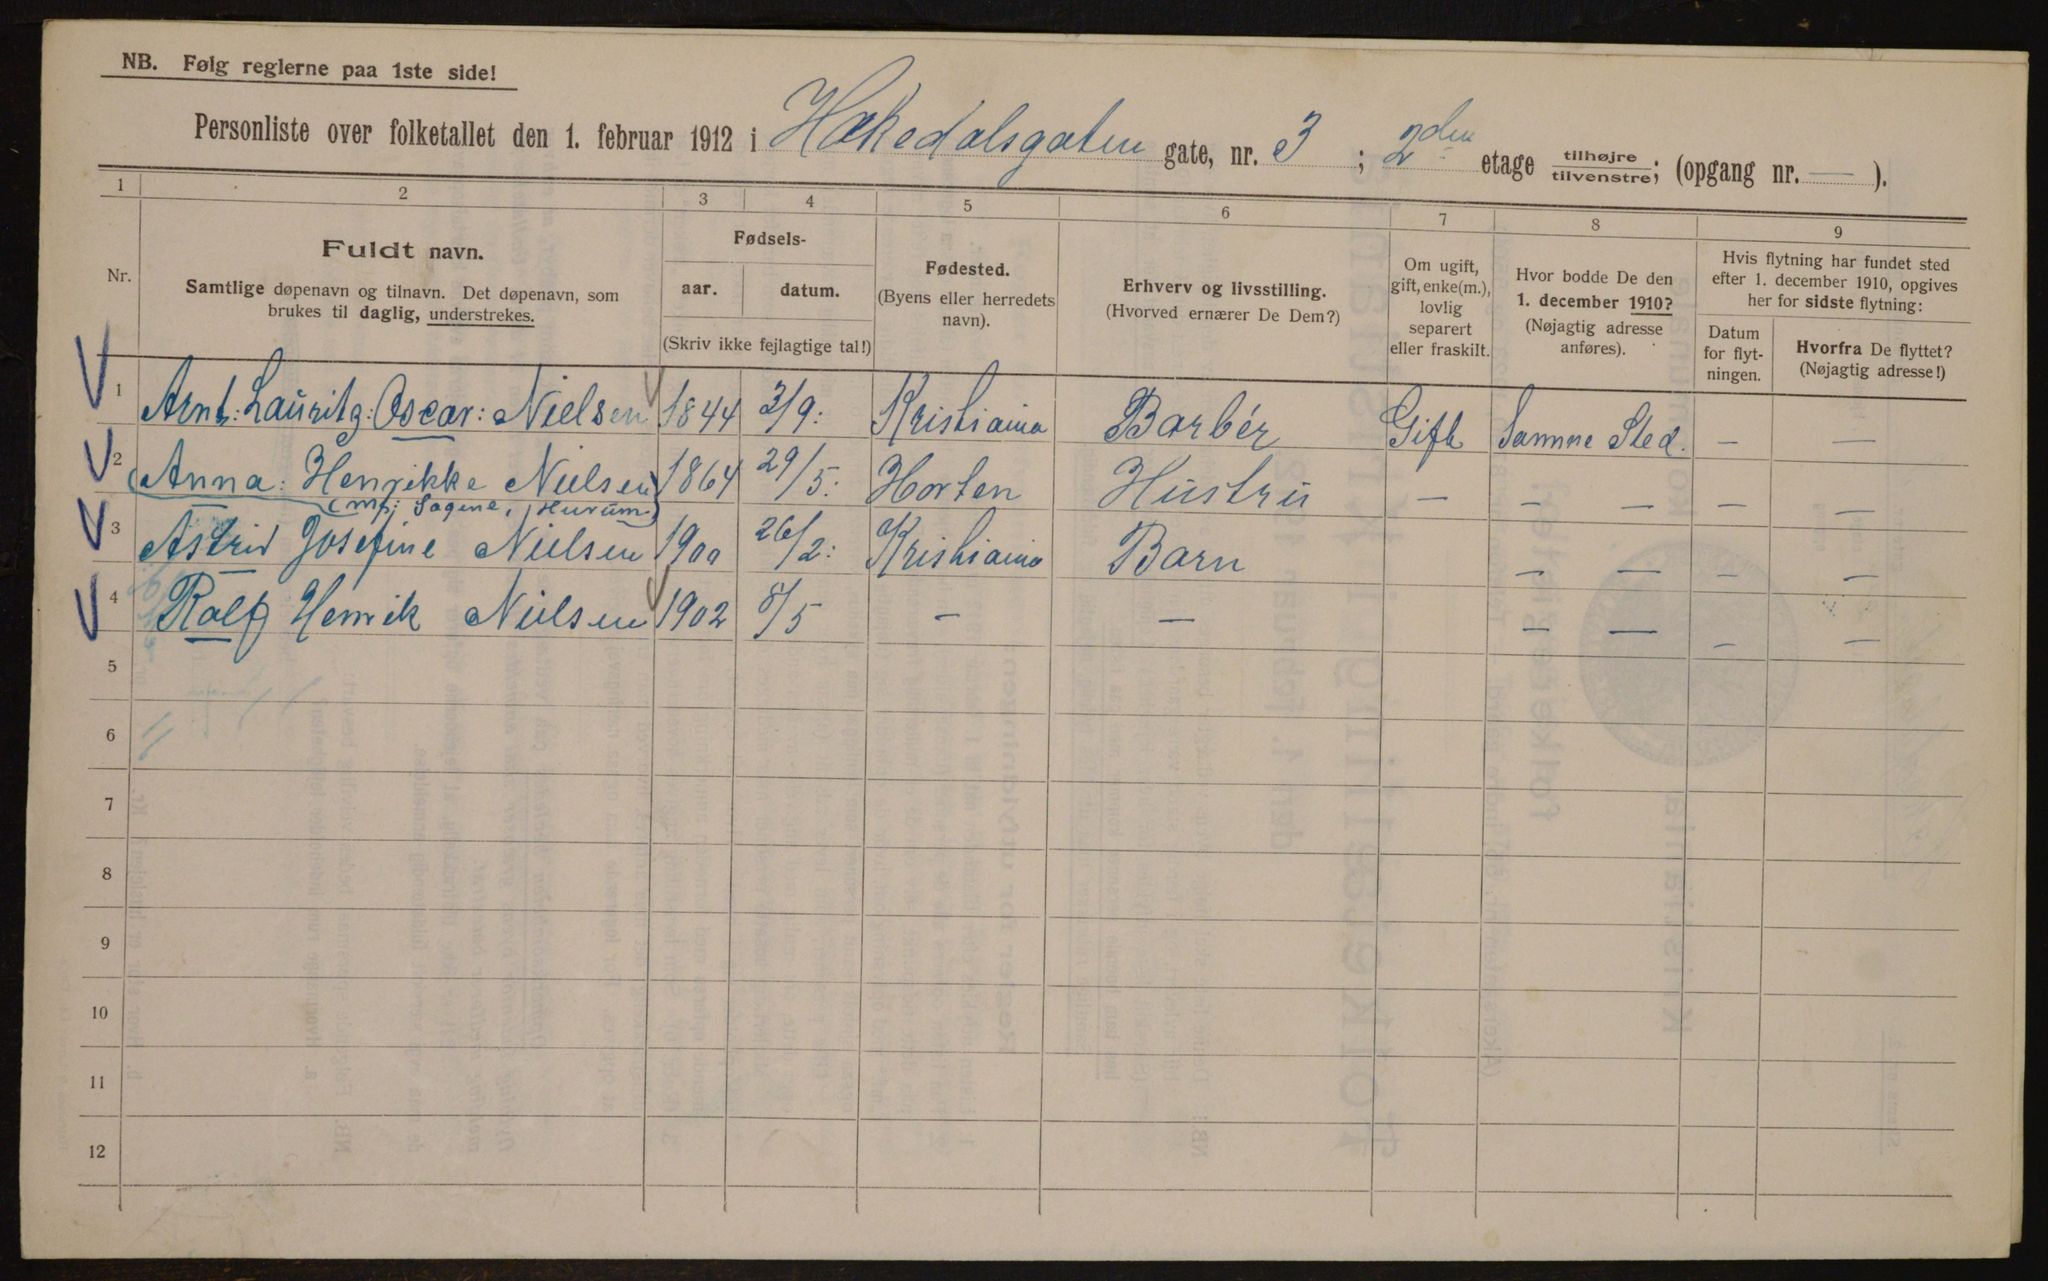 NB. Følg reglerne paa 1ste side!
Personliste over folketallet den 1. februar 1912 i Hakedalsgaten gate, nr. 3 ; 2den etage tilhøjre / tilvenstre; (opgang nr. — ).
1 2 3 4 5 6 7 8 9
Nr.
Fuldt navn.
Samtlige døpenavn og tilnavn. Det døpenavn, som
brukes til daglig, understrekes.
Fødsels-
aar. datum.
(Skriv ikke fejlagtige tal!)
Fødested.
(Byens eller herredets
navn).
Erhverv og livsstilling.
(Hvorved ernærer De Dem?)
Om ugift,
gift, enke(m.),
lovlig
separert
eller fraskilt.
Hvor bodde De den
1. december 1910?
(Nøjagtig adresse
anføres).
Hvis flytning har fundet sted
efter 1. december 1910, opgives
her for sidste flytning:
Datum
for flyt-
ningen.
Hvorfra De flyttet?
(Nøjagtig adresse!)
1 Arnt: Lauritz: Oscar: Nielsen 1844 3/9: Kristiania Barbér Gift Samme Sted. — —
2 Anna: Henrikke Nielsen 1864 29/5: Horten Hustru — — — — —
Hurum)
3 Astrid Josefine Nielsen 1900 26/2: Kristiania Barn — — — —
4 Rolf Henrik Nielsen 1902 8/5 — — — — — —
5
6
7
8
9
10
11
12